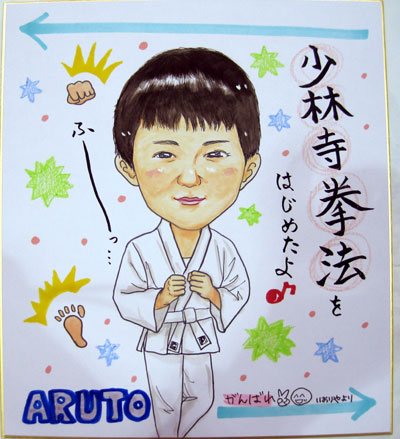 少林寺拳法を
はじめたよ♪
ふーっ…
ARUTO
がんばれ
にありやより